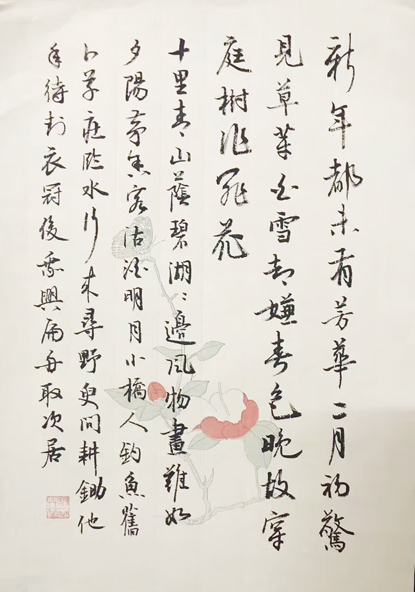 新年都未有芳華二月初驚
見草芽白雪却嫌春色晚故穿
庭樹作飛花
十里青山蔭碧湖〻邊風物畫難如
夕陽茅舍客沽酒明月小橋人釣魚舊
卜草莊臨水竹來尋野叟問耕鋤他
年待挂衣冠後乘興扁舟取次居